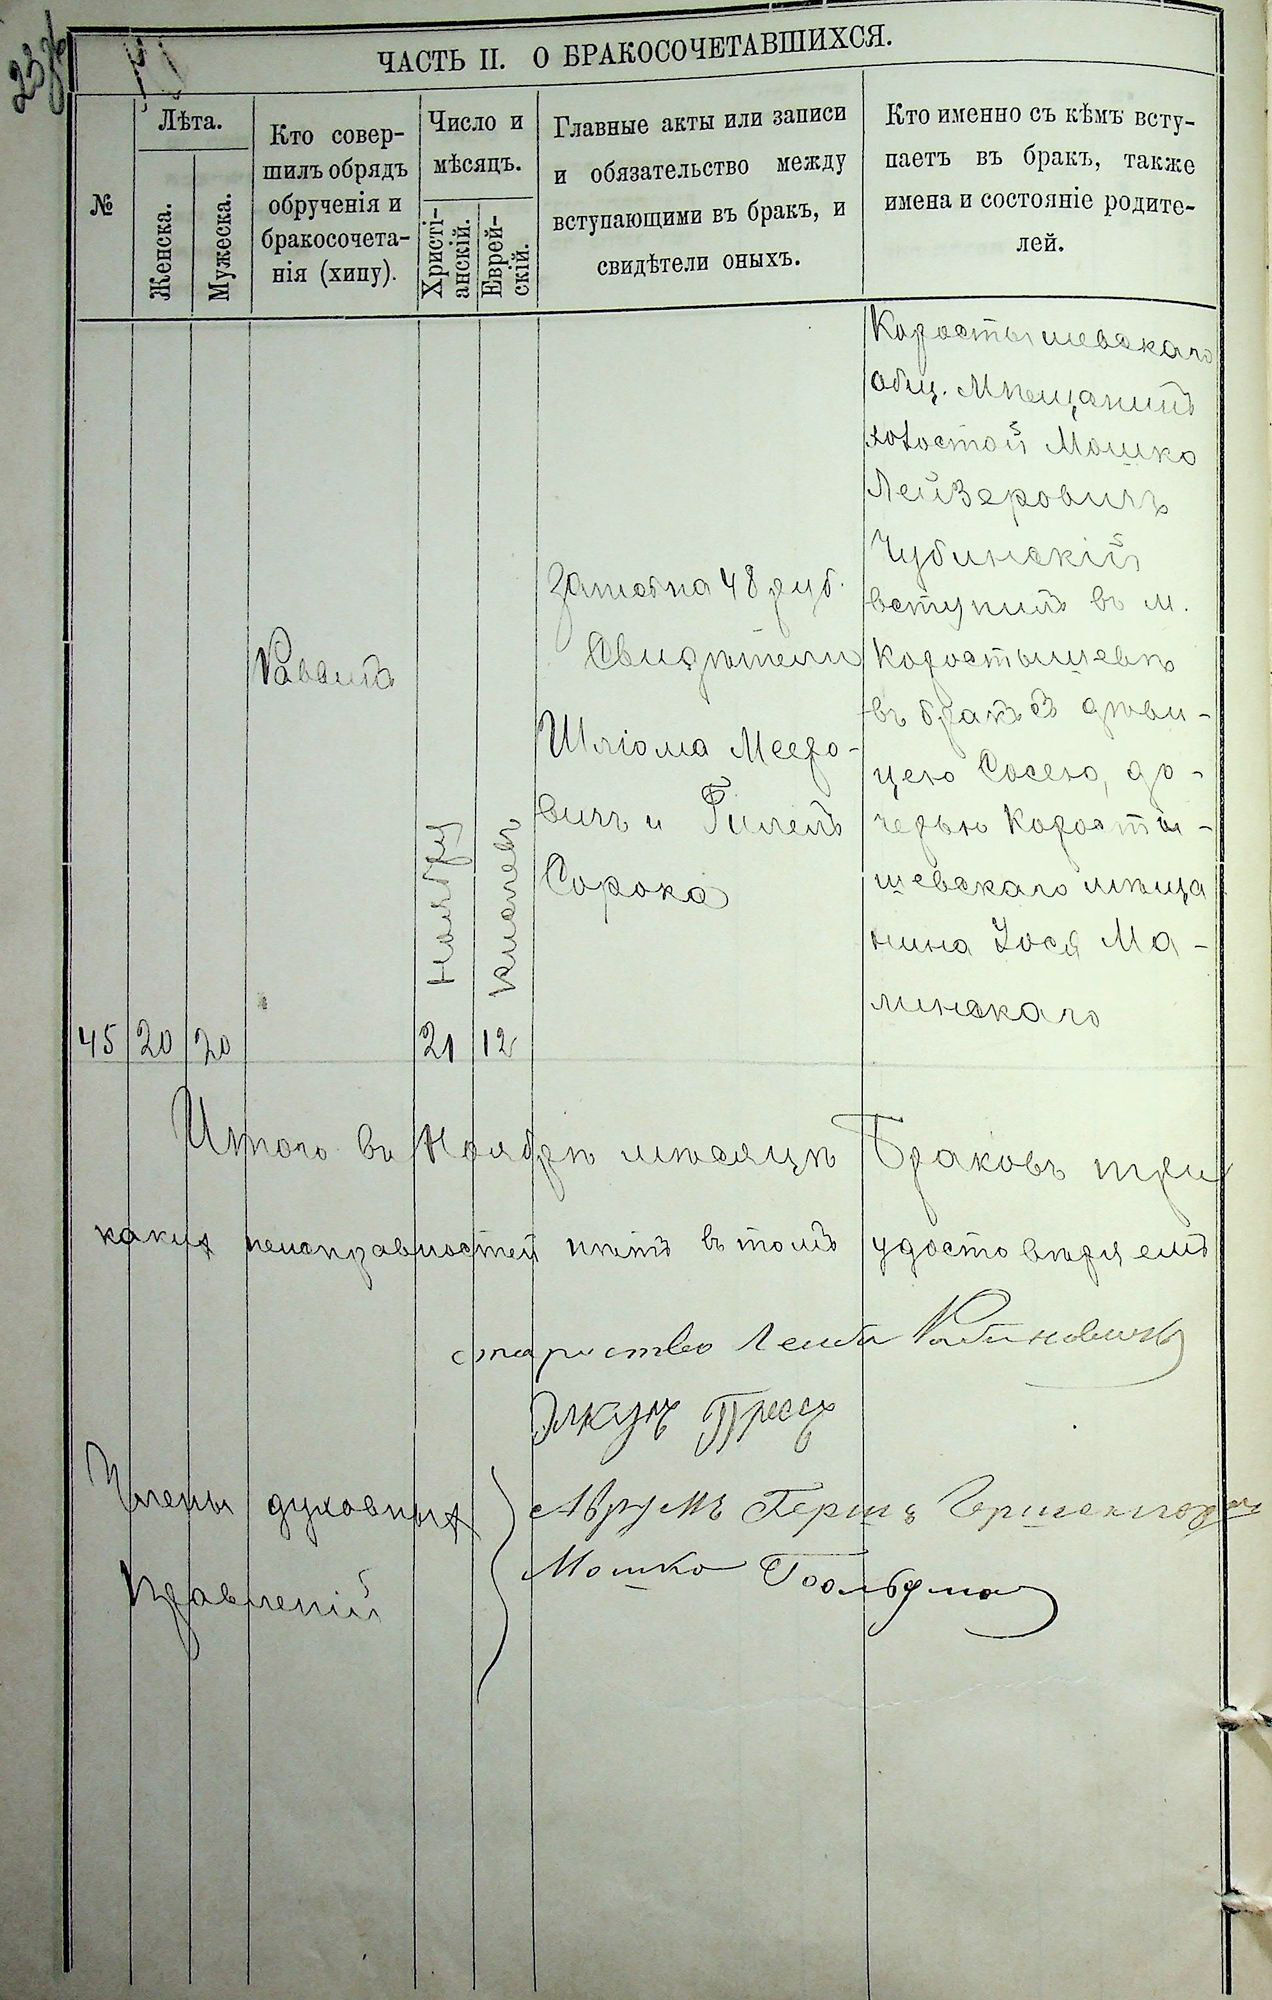 ЧАСТЬ II. О БРАКОСОЧЕТАВШИХСЯ.
№
Лѣта.
Женска.
Мужеска.
Кто совер-
шилъ обрядъ
обрученія и
бракосочета-
нія (хипу).
Число и
мѣсяцъ.
Христі-
анскій.
Еврей-
скій.
Главные акты или записи
и обязательство между
вступающими въ бракъ, и
свидѣтели оныхъ.
Кто именно съ кѣмъ всту-
паетъ въ бракъ, также
имена и состояніе родите-
лей.
45
20
20
Раввинъ
Ноября
21
Кислевъ
12
Запись на 48 руб.
Свидѣтели
Шліома Мееро-
вичъ и Гилель
Сорока
Коростышевскаго
общ. Мѣщанинъ
холостой Мошко
Лейзеровичъ
Чубинскій
вступилъ въ м.
Коростышевѣ
въ бракъ съ дѣви-
цею Сосею, до-
черью Коросты-
шевскаго мѣща
нина Іося Ма-
линскаго
Итого въ Ноябрѣ мѣсяцѣ Браковъ три
какихъ неисправностей нѣтъ въ томъ удостовѣряемъ
староство Лейба Рабиновичъ
Члены духовныхъ
Правленій
Аврумъ Гершъ
Мошко Гольдма